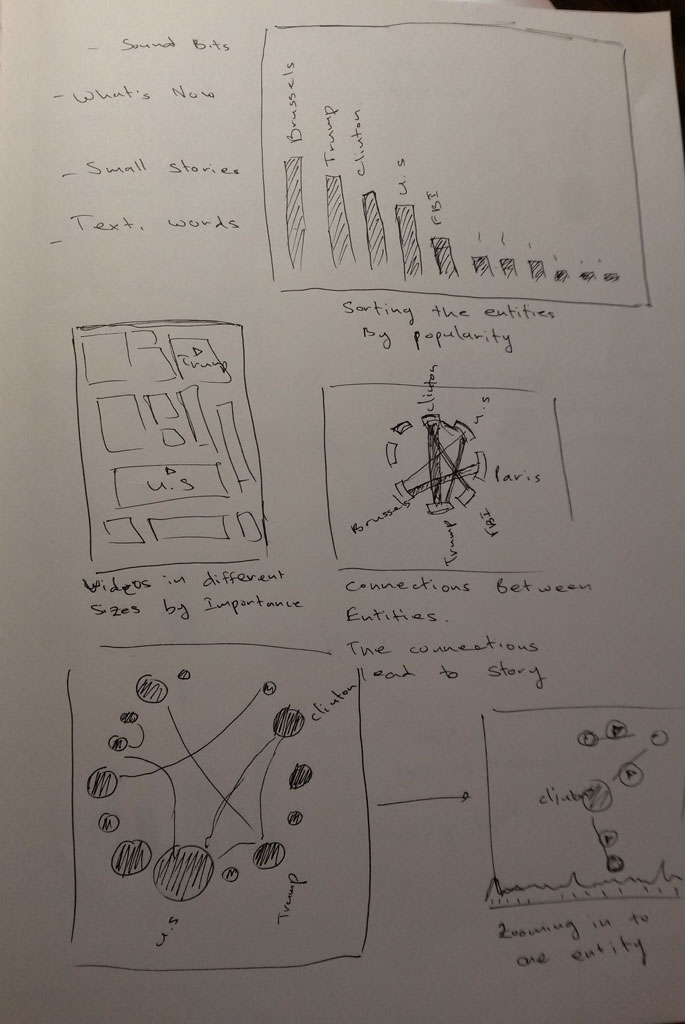 - Sound Bits
- What's Now
- Small stories
- Text, words
Brussels
Trump
Clinton
U.S
FBI
Sorting the entities
By popularity
Trump
U.S
Videos in different
Sizes by Importance
Clinton
U.S
Paris
FBI
Trump
Brussels
Connections Between
Entities.
The connections
lead to story
Clinton
U.S
Trump
Clinton
Zooming in to
one entity